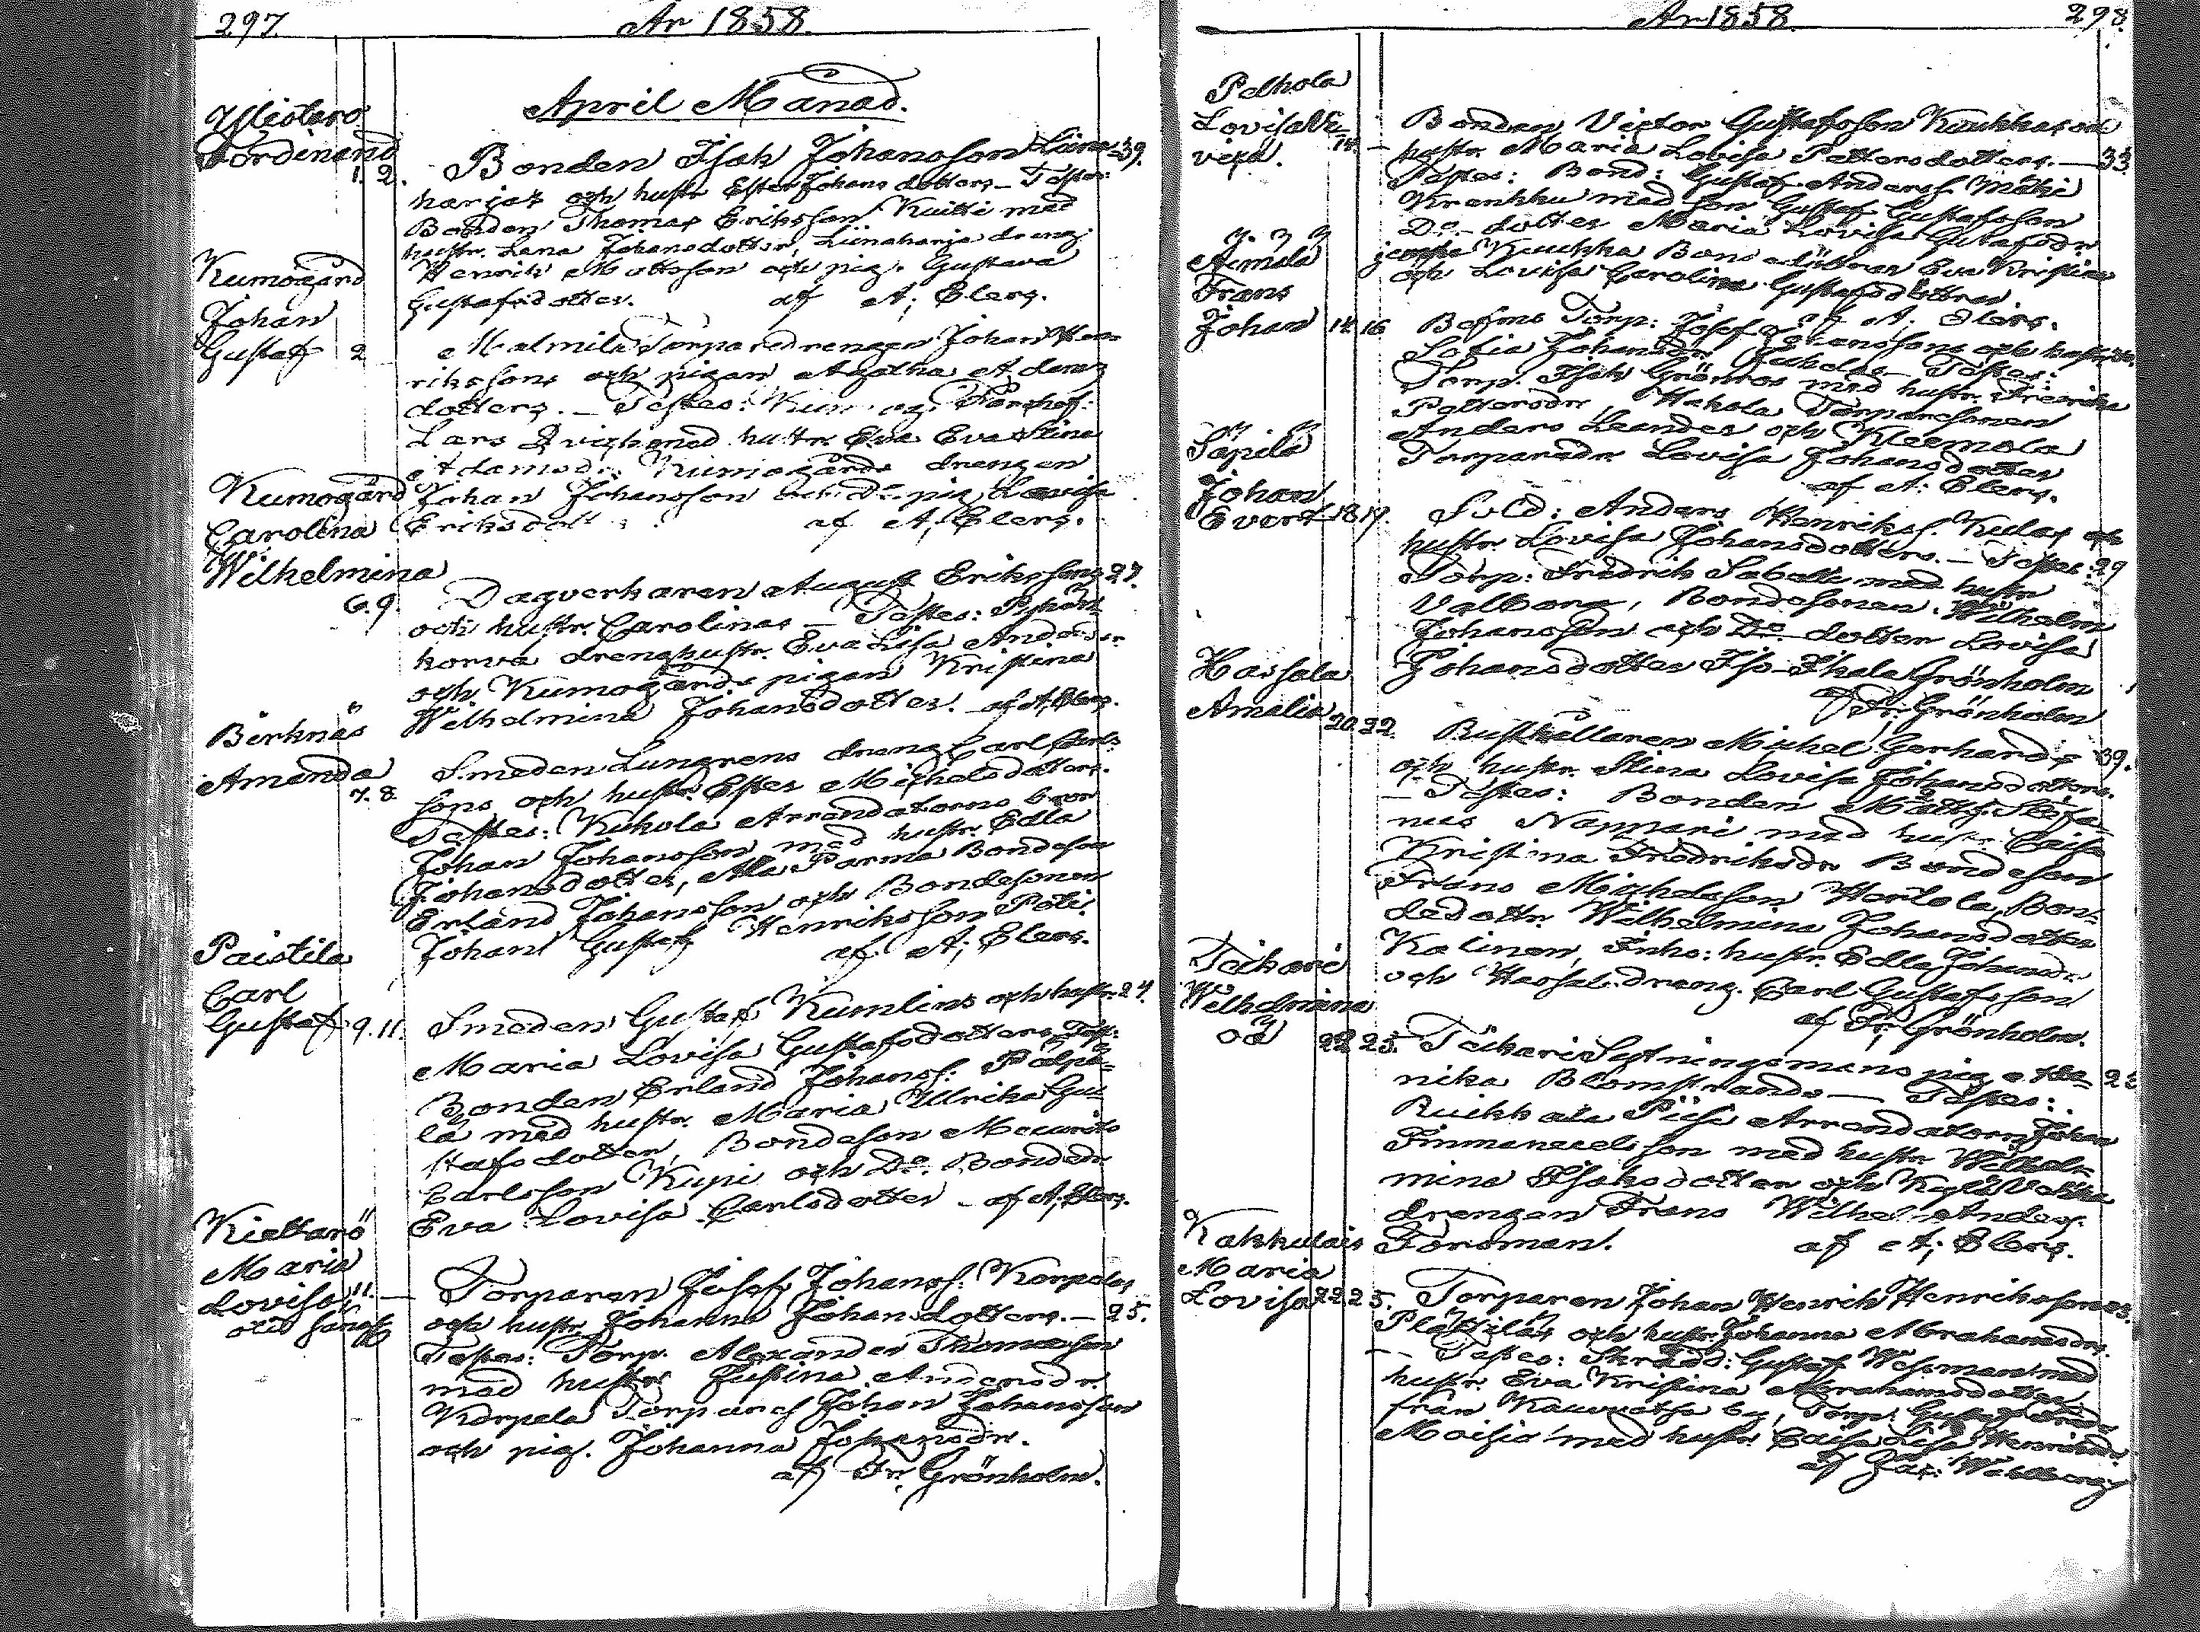 297.
År 1858.
April Månad.
Ylistaro
Ferdinand
1. 2.
Bonden Isak Johansson Liina- 39.
harjas och hustr Ester Johansdotters — Testes:
Bonden Thomas Eriksson Kuitti med
hustr. Lena Johansdotter, Liinaharja dreng
Henrik Mattsson och pig. Gustava
Gustafsdotter. af A; Elers.
Kumogård
Johan
Gustaf 2
Malmila Torparedrengen Johan Hen-
rikssons och pigan Agatha Adams
dotters. — Testes:
Lars Qvick med hustr. Eva Eva Stina
Adamsdr. Kumogårds drengen
Johan Johansson och Do pig Lovisa
Eriksdott af A; Elers.
Kumogård
Carolina
Wilhelmina
6. 9.
Dagverkaren August Erikssons 27.
och hustr. Carolinas — Testes:
korva drenghustr. Eva Lisa Andersdr
och Kumogårds pigan Kristina
Wilhelmina Johansdotter. — af A; Elers.
Birknäs
Amanda
7. 8.
Smeden Lungrens dreng Carl Carls-
sons och hustr. Ester Michelsdotters.
Testes: Kukola Arrendatorns bror
Johan Johansson med hustr. Edla
Johansdotter, Ala Parma Bondeson
Erland Johansson och Bondesonen
Johan Gustaf Henriksson Poti.
af A; Elers.
Paistila
Carl
Gustaf 9. 11.
Smeden Gustaf Kumlins och hustr. 24.
Maria Lovisa Gustafsdotters, Test:
Bonden Erland Johanss: Pälpä-
lä med hustr. Maria Ulrika Gu-
stafsdotter, Bondeson Mauritz
Carlsson Kupi och Do Bondedr
Eva Lovisa Carlsdotter — af A; Elers.
Kieltarö
Maria
Lovisa 11. —
Torparen Josef Johanss: Korpelas
och hustr. Johanna Johansdotters. — 25.
Testes: Torp. Alexander Thomasson
med hustr Justina Andersdr.
Korpela Torpares Johan Johansson
och pig. Johanna Johansdr.
af Fr: Grönholm.
År 1858.
298.
Pelhola
Lovisa
14. —
Bonden Victor Gustafsson Kuukkas och
hustr. Maria Lovisa Pettersdotters. — 33.
Testes: Bond: Gustaf Anderss. Mäki
Krankku med son Gustaf Gustafsson
Do dotter Maria Lovisa Gustafsdr
jemte Kuukka Bonddöttrar Eva Kristina
och Lovisa Carolina Gustafsdöttrar.
af A; Elers.
Frans
Johan 14. 16
Torp: Josef Johanssons och hustr.
Sofia Johansdr — Testes:
Torp. Isak Grönros med hustr. Fredrika
Pettersdr, Hakola Torparesonen
Anders Leander och Kleemola
Torparedr Lovisa Johansdotter
af A: Elers.
Säpilä
Johan
Evert 18. 19.
Sold: Anders Henrikss. Kulas och
hustr. Lovisa Johansdotters. — Testes: 29
Torp: Fredrik Sabell med hustr
Valbora, Bondesonen Wilhelm
Johansson och Do dotter Lovisa
Johansdotter Iso Ihala Grönholm
Fr: Grönholm
Hassala
Amalia 20. 22.
Rusthållaren Michel Gerhards 39.
och hustr. Stina Lovisa Johansdotters.
— Testes: Bonden Matts Stefa-
nus Nappari med hustr. Caisa
Kristina Fredriksdr Bondeson
Frans Michelsson Hertola, Bon-
dedottr. Wilhelmina Johansdotter
Kalinen, Inhs: hustr. Edla Johansdr
och Hassala dreng. Carl Gustafsson
af Fr; Grönholm.
Teikari
Wilhelmina
oä 22 25.
Teikari Sextningsmans pig Hen- 23
rika Blomstrands — Testes:
Ruikkala Piisi Arrendatorn Johan
Immanuelsson med hustr. Wilhel-
mina Isaksdotter och
drengen Frans Wilhelm Anders.
Forsman. af A; Elers.
Kakkulais
Maria
Lovisa 22 25.
Torparen Johan Henrik Henrikssons
och hustr. Johanna Abrahamsdrs.
— Testes: Skrädd: Gustaf Wessman med
hustr. Eva Kristina Abrahamsdotter
från Kauvatsa by, Torp. Gustaf
Moisio med hustr. Caisa Lisa Henriksdr
af Zac: Wahlberg